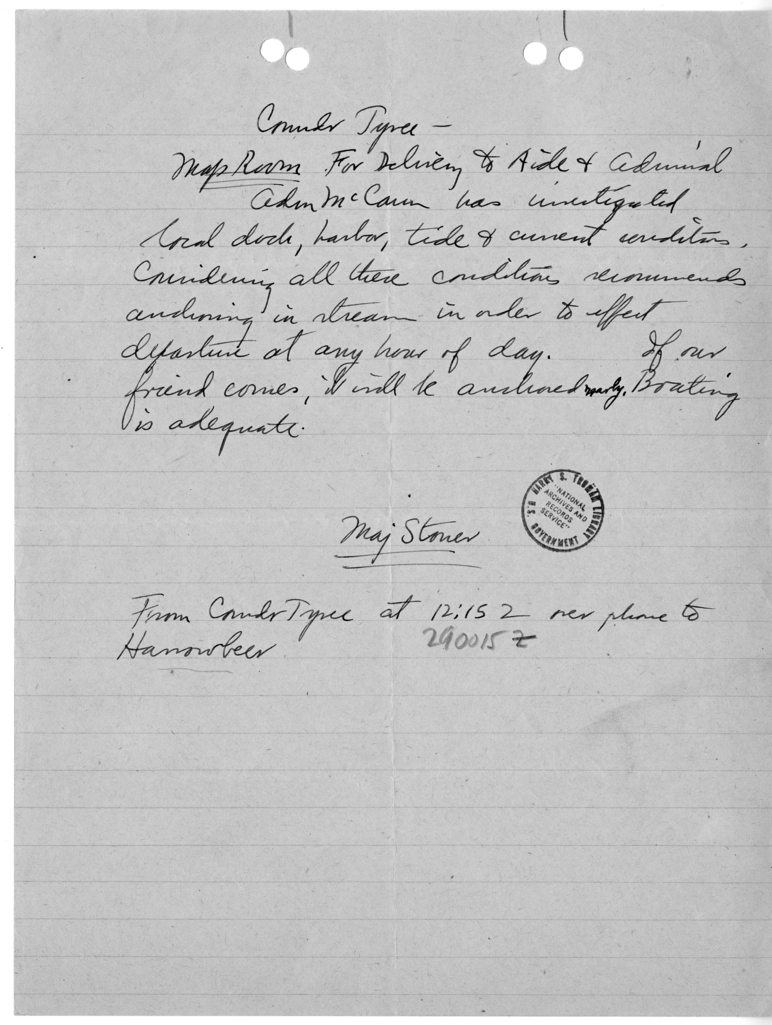 Comdr Tyree –
Map Room For Delivery to Aide & Admiral
Adm McCann has investigated
local dock, harbor, tide & current conditions.
Considering all these conditions recommends
anchoring in stream in order to effect
departure at any hour of day. If our
friend comes, it will be anchored nearby. Boating
is adequate.
HARRY S. TRUMAN LIBRARY
"NATIONAL
ARCHIVES AND
RECORDS
SERVICE"
U.S. GOVERNMENT
Maj Stoner
From Comdr Tyree at 12:15 Z over phone to
Harrowbeer 290015 Z